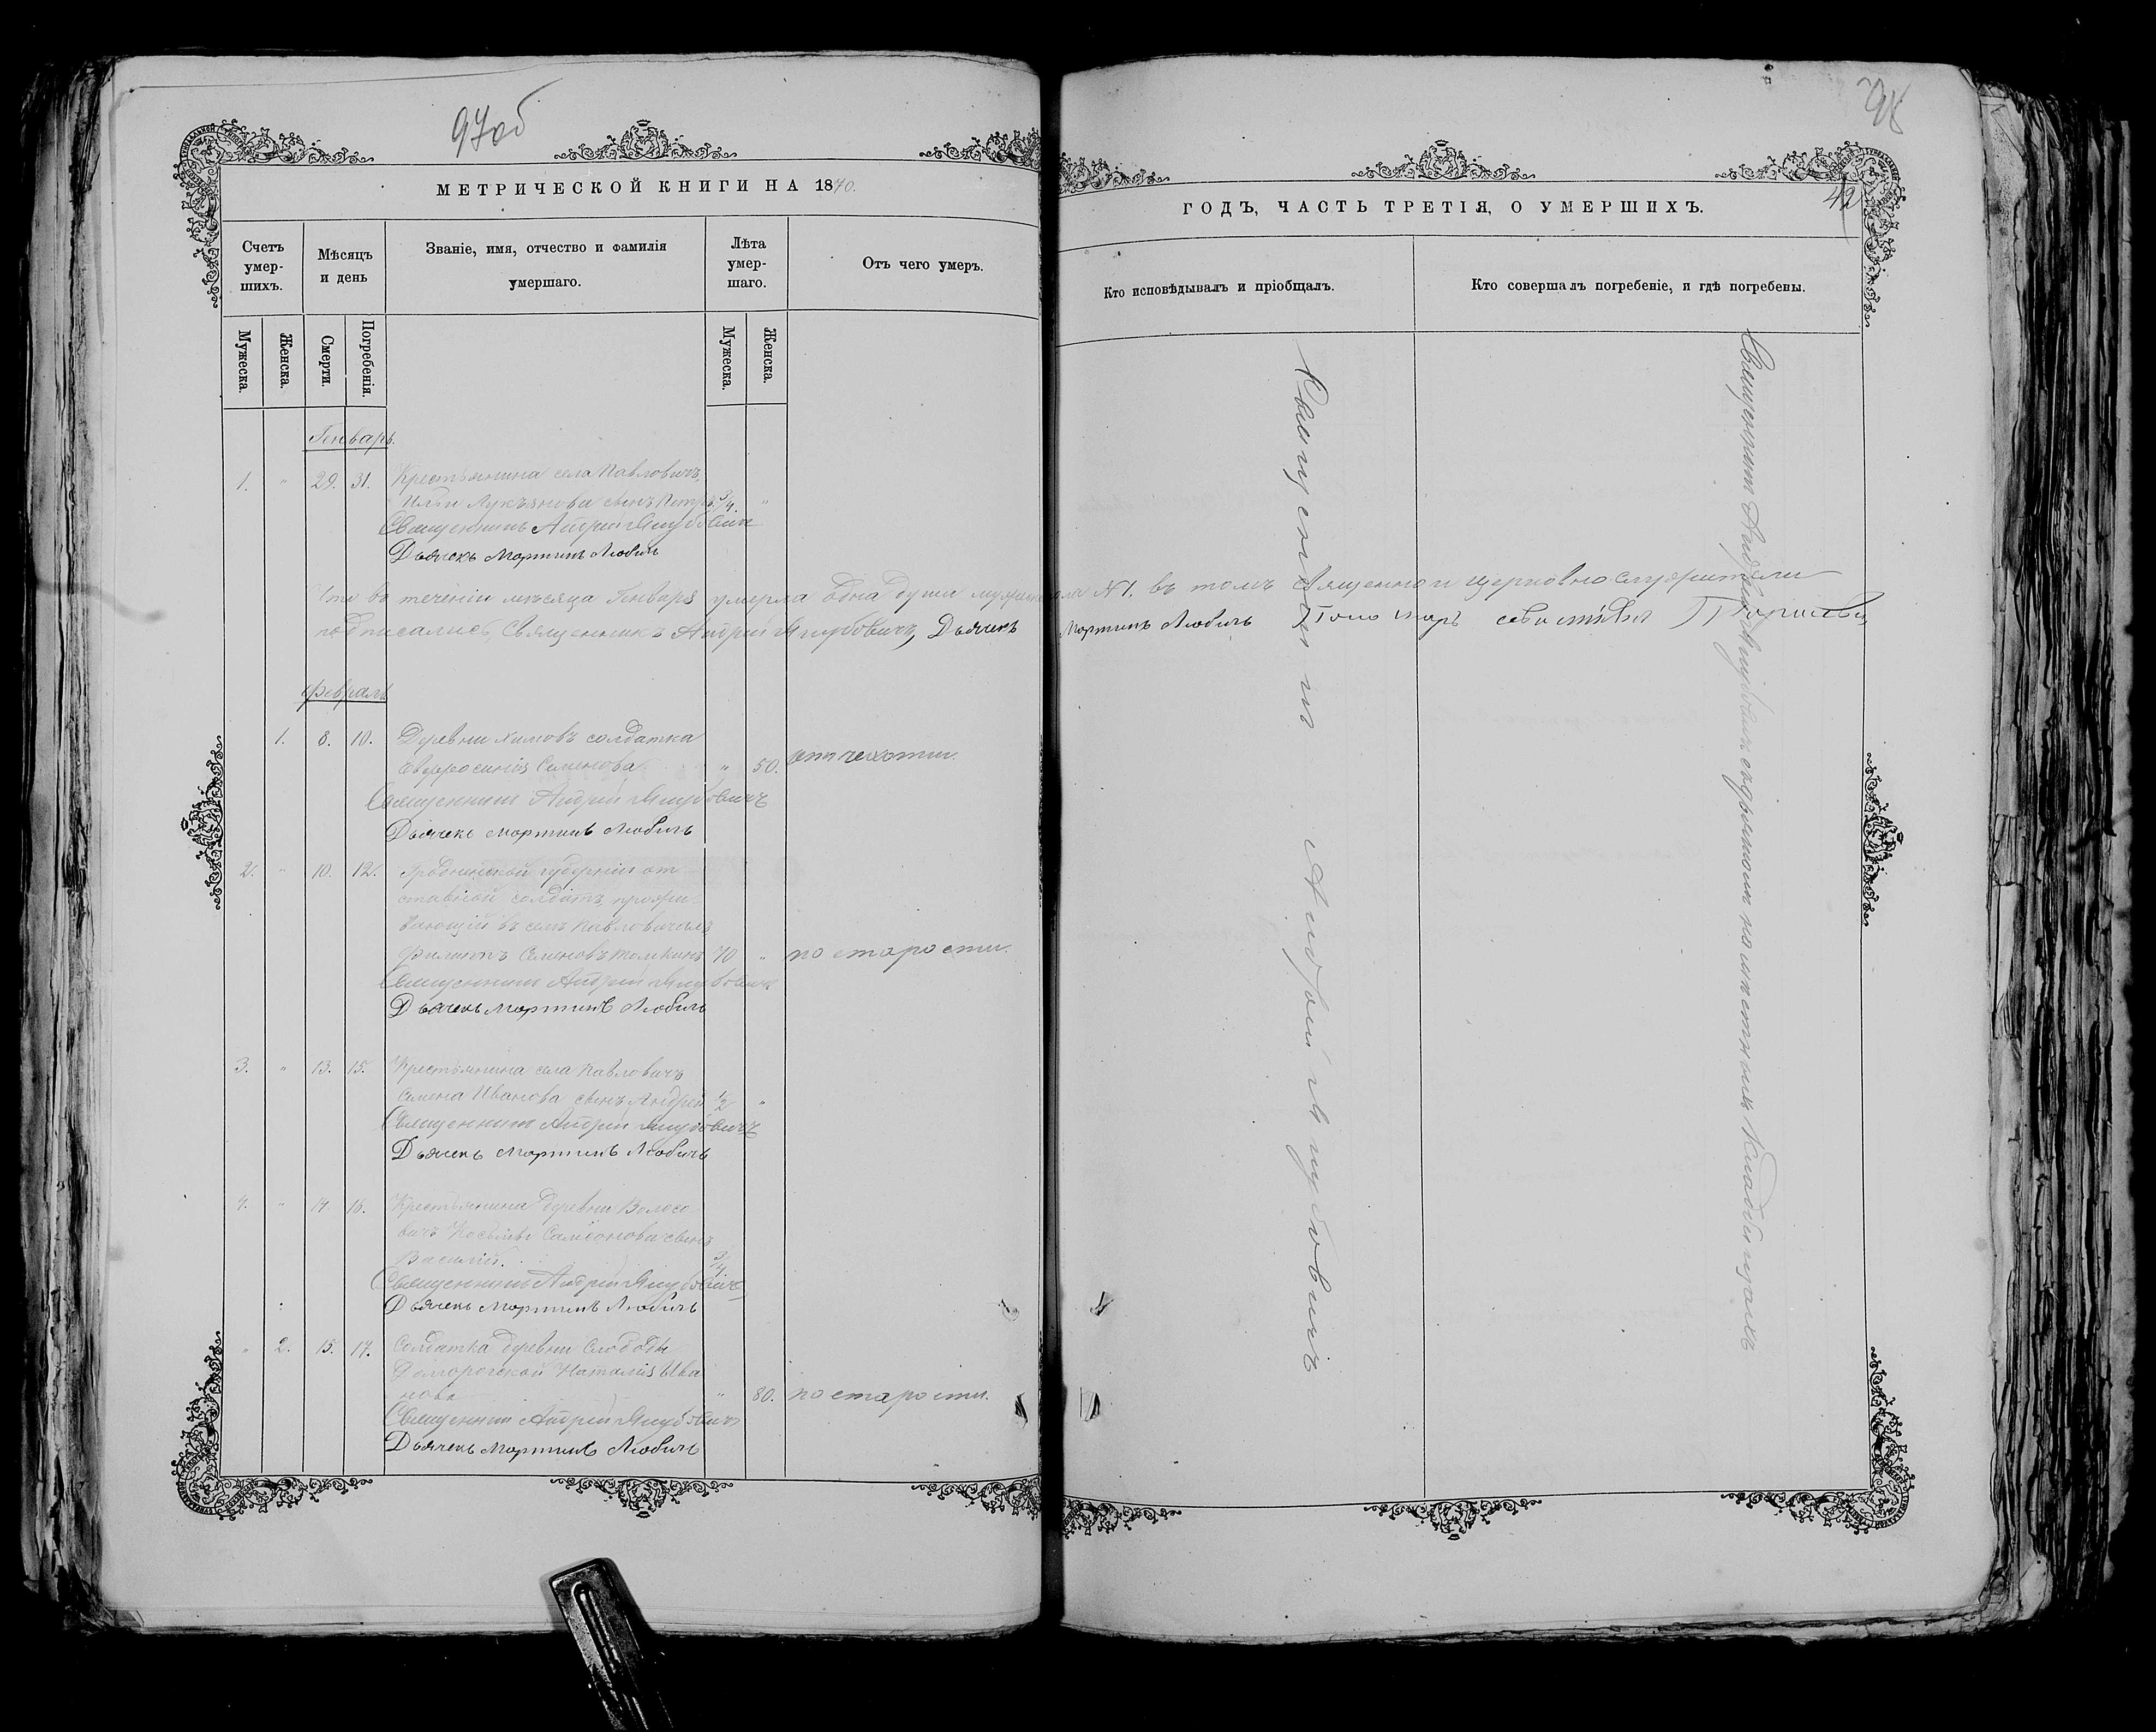 97об
98
42
МЕТРИЧЕСКОЙ КНИГИ НА 1870.
ГОДЪ, ЧАСТЬ ТРЕТІЯ, О УМЕРШИХЪ.
Счетъ умер-шихъ.
Мѣсяцъ и день
Званіе, имя, отчество и фамилія умершаго.
Лѣта умер-шаго.
Отъ чего умеръ.
Кто исповѣдывалъ и пріобщалъ.
Кто совершалъ погребеніе, и гдѣ погребены.
Мужеска.
Женска.
Смерти.
Погребенія.
Мужеска.
Женска.
Генварь.
1. " 29. 31. Крестьянина села Павловичъ
Ильи Лукьянова сынъ Петръ 3/4. "
Священникъ Андрей Якубовичъ
Дьячекъ Мартинъ Любичъ
Что въ теченіи мѣсяца Генваря умерла одна душа мужеска пола №1. въ томъ Священно и церковно служители
подписались, Священникъ Андрей Якубовичъ, Дьячекъ Мартинъ Любичъ Пономарь
Февраль
1. 8. 10. Деревни Химовъ солдатка
Евфросинія Семенова " 50. отъ чехотки.
Священникъ Андрей Якубовичъ
Дьячекъ Мартинъ Любичъ
2. " 10. 12. Гродненской губерніи от
ставной солдатъ, прожи
вающій въ селѣ Павловичахъ
Филиппъ Семеновъ 70 " по старости.
Священникъ Андрей Якубовичъ
Дьячекъ Мартинъ Любичъ
3. " 13. 15. Крестьянина села Павловичъ
Семена Иванова сынъ Андрей 1/2 "
Священникъ Андрей Якубовичъ
Дьячекъ Мартинъ Любичъ
4. " 14. 16. Крестьянина деревни Волосо
вичъ Космы Самсонова сынъ
Василій. 3/4
Священникъ Андрей Якубовичъ
Дьячекъ Мартинъ Любичъ
" 2. 15. 17. Солдатка деревни Слободы
Наталія Ива
нова " 80. по старости.
Священникъ Андрей Якубовичъ
Дьячекъ Мартинъ Любичъ
Священникъ Андрей Якубовичъ
Священникъ Андрей Якубовичъ на кладбищахъ